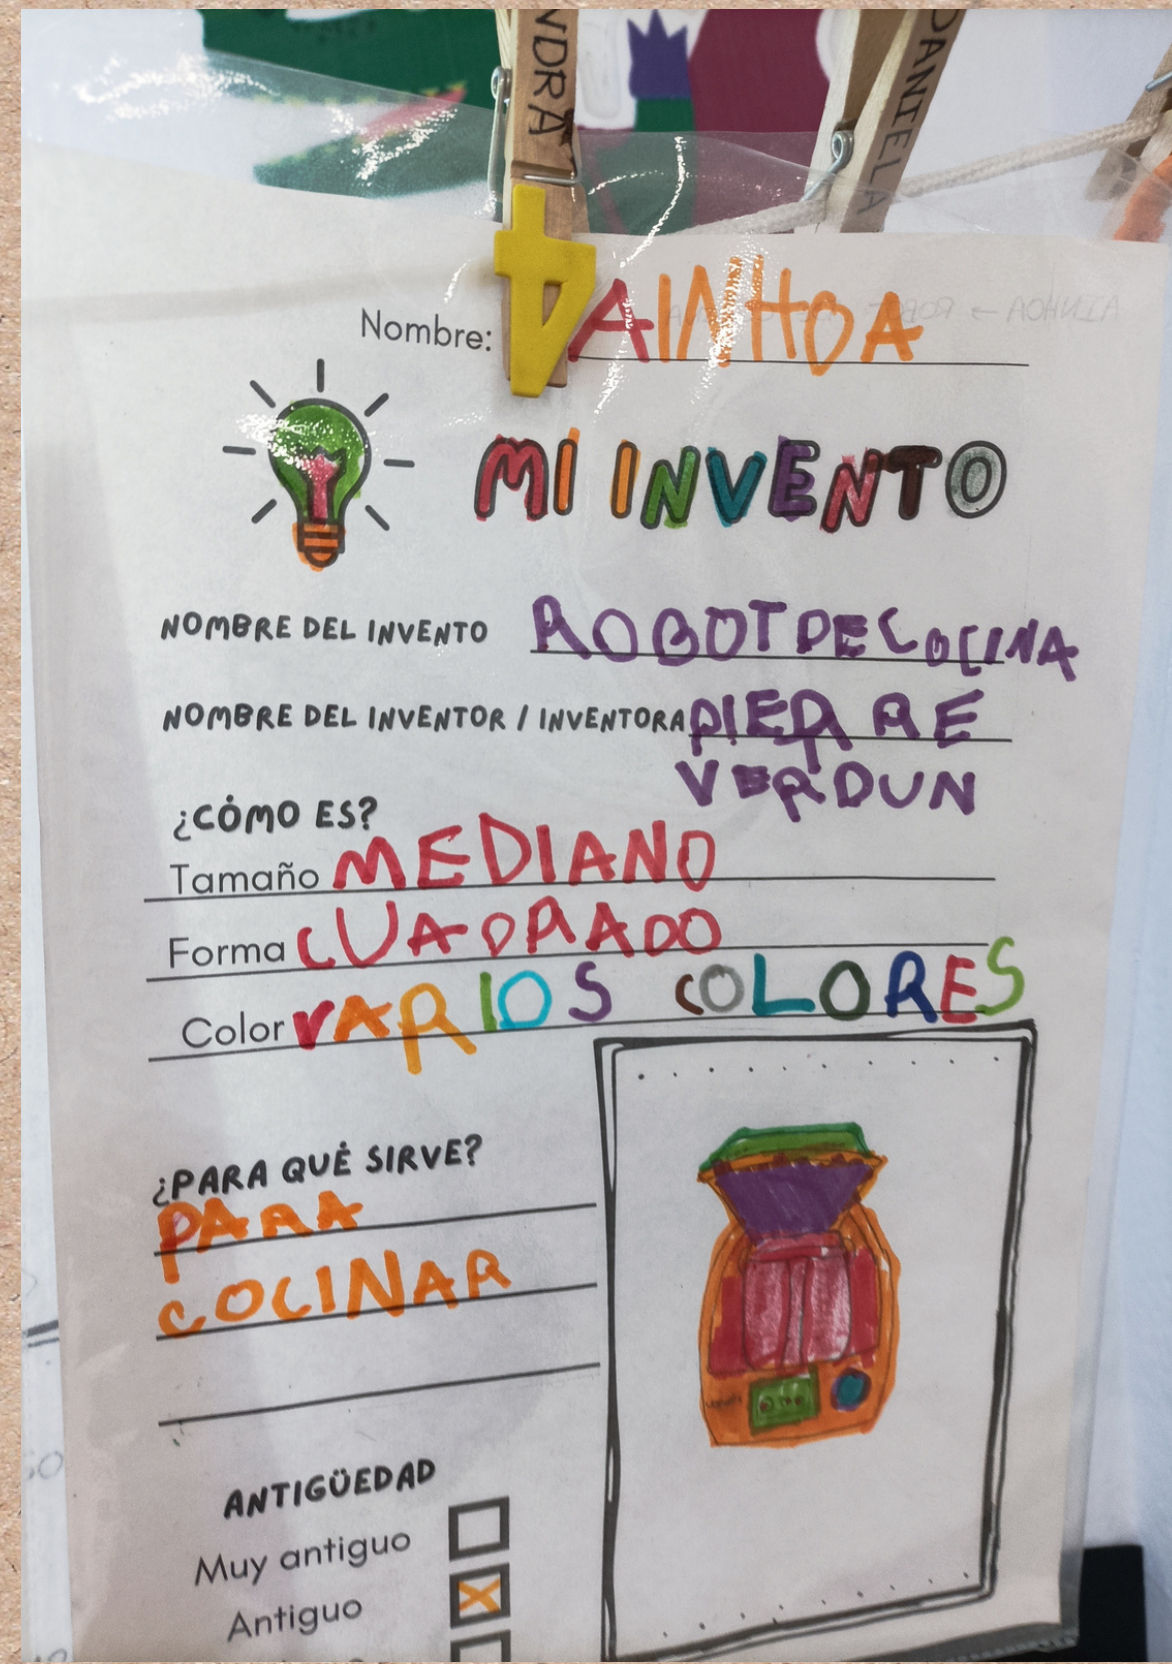 NDRA
DANIELA
4
Nombre: AINHOA
MI INVENTO
NOMBRE DEL INVENTO ROBOT DE COCINA
NOMBRE DEL INVENTOR / INVENTORA PIERRE
VERDUN
¿CÓMO ES?
Tamaño MEDIANO
Forma CUADRADO
Color VARIOS COLORES
¿PARA QUÉ SIRVE?
PARA
COCINAR
ANTIGÜEDAD
Muy antiguo
Antiguo X